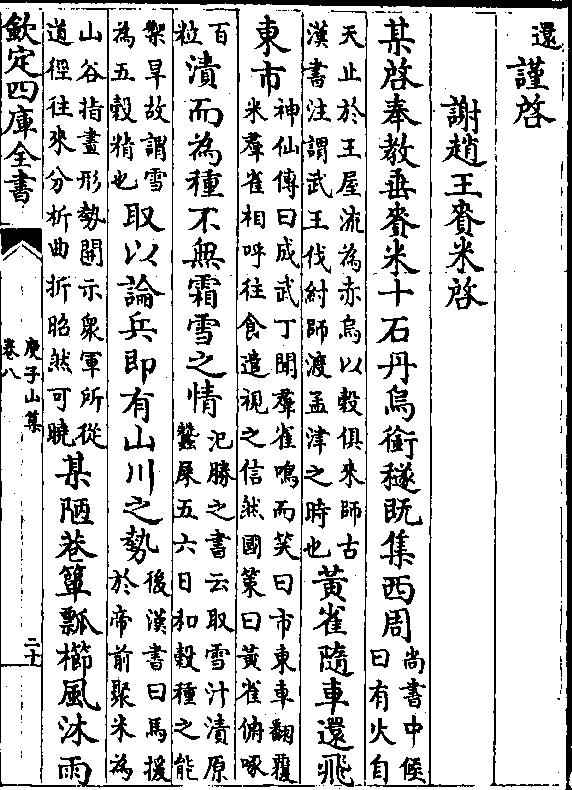 還謹啓
謝趙王賚米啓
某啓奉教垂賚米十石丹烏銜穟既集西周
尚書中候
曰有火自
天止於王屋流為赤烏以穀俱來師古
漢書注謂武王伐紂師渡孟津之時也
黃雀隨車還飛
東市
神仙傳曰成武丁聞羣雀鳴而笑曰市東車翻覆
米羣雀相呼往食遣視之信然國策曰黃雀俯啄
百
粒
漬而為種不無霜雪之情
汜勝之書云取雪汁漬原
蠶屎五六日和穀種之能
禦旱故謂雪
為五穀精也
取以論兵即有山川之勢
後漢書曰馬援
於帝前聚米為
山谷指畫形勢開示衆軍所從
道徑往來分析曲折昭然可曉
某陋巷簞瓢櫛風沐雨
欽定四庫全書
庾子山集
卷八
二十